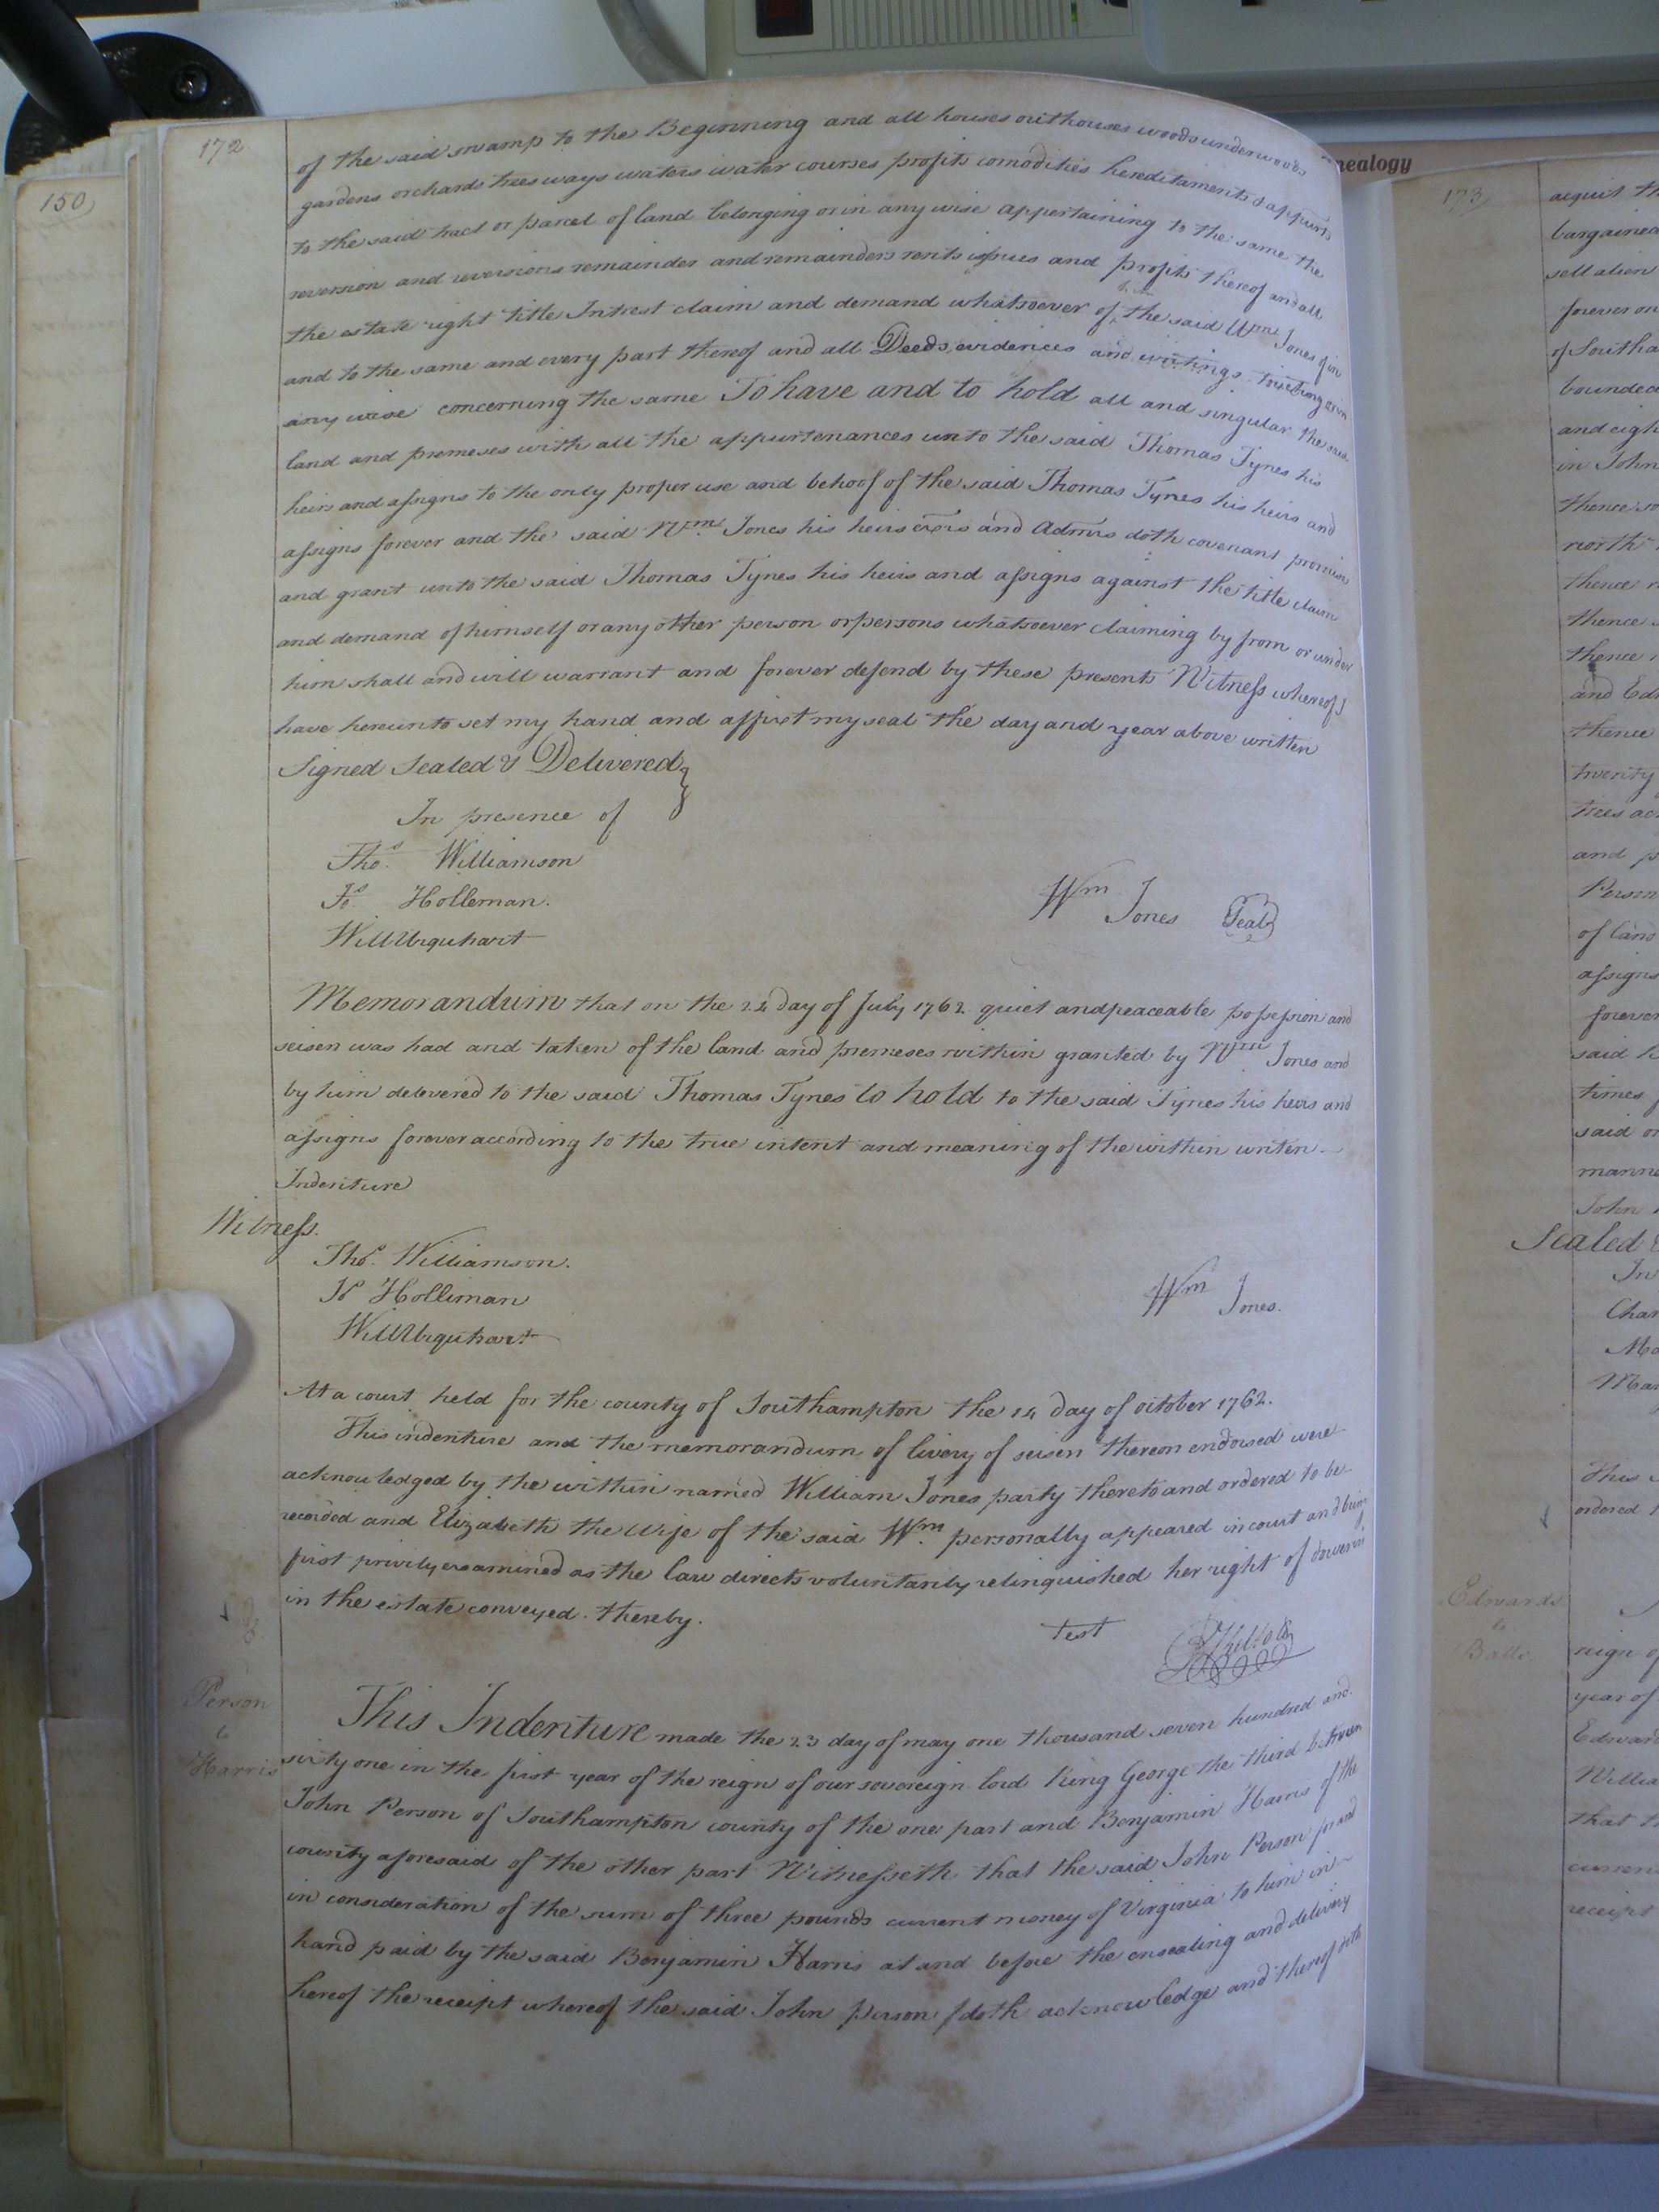 150
172
of the said swamp to the Beginning and all houses outhouses woods underwoods
gardens orchards trees ways waters water courses profits comodities hereditaments & appurts
to the said tract or parcel of land belonging or in any wise appertaining to the same the
reversion and reversions remainder and remainders rents issues and profits thereof and all
the estate right title Intrest claim and demand whatsoever of him the said Wm Jones of in
and to the same and every part thereof and all Deeds evidences and writings touching or in
any wise concerning the same To have and to hold all and singular the said
land and premeses with all the appurtenances unto the said Thomas Tynes his
heirs and assigns to the only proper use and behoof of the said Thomas Tynes his heirs and
assigns forever and the said Wm. Jones his heirs exrs and Admrs doth covenant promise
and grant unto the said Thomas Tynes his heirs and assigns against the title claim
and demand of himself or any other person or persons whatsoever claiming by from or under
him shall and will warrant and forever defend by these presents Witness whereof I
have hereunto set my hand and affixt my seal the day and year above written
Signed Sealed & Delivered
In presence of
Thos. Williamson
Js. Holleman.
Will Urquhart
Wm Jones Seal
Memorandum that on the 24 day of July 1762 quiet and peaceable possession and
seisen was had and taken of the land and premeses within granted by Wm Jones and
by him delevered to the said Thomas Tynes to hold to the said Tynes his heirs and
assigns forever according to the true intent and meaning of the within writen
Indenture
Witness.
Thos. Williamson.
Js Holliman
Will Urquhart
Wm Jones.
At a court held for the county of Southampton the 14 day of october 1762.
This indenture and the memorandum of livery of seisen thereon endorsed were
acknowledged by the within named William Jones party thereto and ordered to be
recorded and Elizabeth the wife of the said Wm. personally appeared in court and being
first privily examined as the law directs voluntarily relinquished her right of dower in
in the estate conveyed thereby.
Test
Person
to
Harris
This Indenture made the 23 day of may one thousand seven hundred and
sixty one in the first year of the reign of our sovereign lord King George the third between
John Person of Southampton county of the one part and Benjamin Harris of the
county aforesaid of the other part Witnesseth that the said John Person for and
in consideration of the sum of three pounds current money of Virginia to him in
hand paid by the said Benjamin Harris at and before the ensealing and delivery
hereof the receipt whereof the said John person doth acknowledge and thereof doth
nealogy
173
acquit
bargained
sell alien
forever
of Southa
bounded
and eigh
in John
thence
north
thence
thence
thence
and Ed
thence
twenty
trees
and
Person
of land
assigns
forever
said
times
said
manne
John
Sealed
In
Char
Ma
Mar
This
ordered
Edwards
to
Balls.
reign of
year of
Edward
Willia
that
curren
receipt